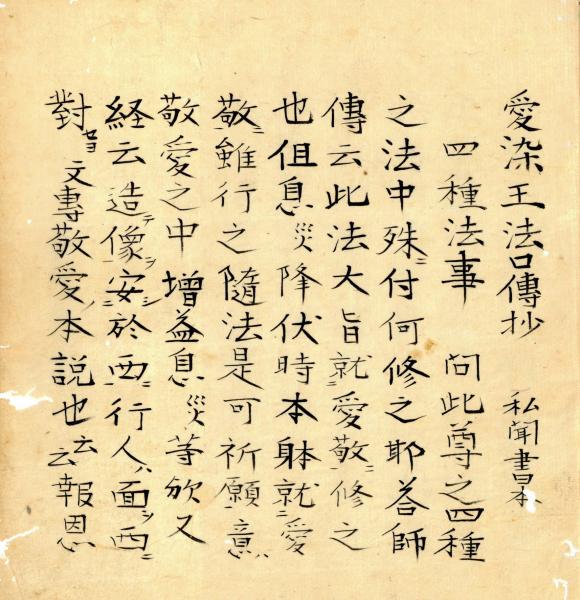 愛染王法口傳抄 私聞書本
四種法事 問此尊之四種
之法中殊ニ付何修之耶荅師
傳云此法大旨就愛敬ニ修之
也但息災降伏時本躰就ニ愛
敬ニ雖行之隨法是可祈願意ハ
敬愛之中増益息災等欤又
経云造テ像ヲ安シ於西ニ行人ハ面ヲ西ニ
對セヨ文専敬愛ノ本説也云云報恩